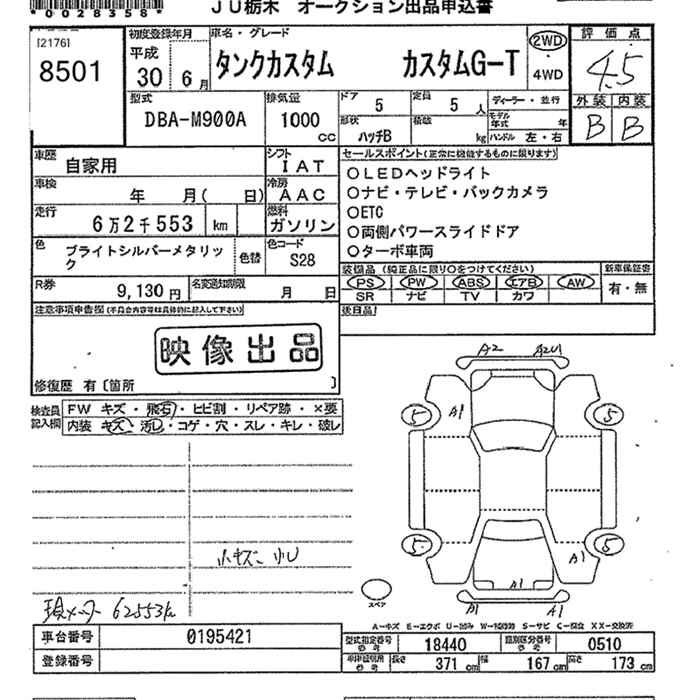 *00283588*
JU栃木 オークション出品申込書
[2176]
8501
初度登録年月
平成
30 6月
車名・グレード
タンクカスタム カスタムG-T
2WD
・
4WD
評価点
4.5
外装 内装
B B
型式
DBA-M900A
排気量
1000
cc
ドア
5
定員
5 人
形状
ハッチB
積載
kg
ディーラー・並行
モデル年式 年
ハンドル 左・右
車歴
自家用
シフト
IAT
車検
年 月( 日)
冷房
AAC
走行
6万2千553 km
燃料
ガソリン
色
ブライトシルバーメタリック
色替
色コード
S28
R券
9,130円
名変通知期限
月 日
セールスポイント(正常に機能するものに限ります)
○LEDヘッドライト
○ナビ・テレビ・バックカメラ
○ETC
○両側パワースライドドア
○ターボ車両
装備品(純正品に限り○をつけてください)
PS PW ABS エアB AW
SR ナビ TV カワ
新車保証書
有・無
後日品!
注意事項申告欄(不具合内容等は具体的に記入して下さい)
映像出品
修復歴 有〔箇所 〕
検査員記入欄
FW キズ・飛石・ヒビ割・リペア跡・×要
内装 キズ・汚レ・コゲ・穴・スレ・キレ・破レ
A2 A2U1
5 A1 5
小キズ、小U
5 5
A1
A1
A1 A1
スペア
現メーター 62553k
A-キズ E-エクボ U-凹み W-補修跡 S-サビ C-腐食 XX-交換済
車台番号
0195421
登録番号
型式指定番号
参考
18440
類別区分番号
参考
0510
車庫証明用
参考
長さ
371 cm
幅
167 cm
高さ
173 cm